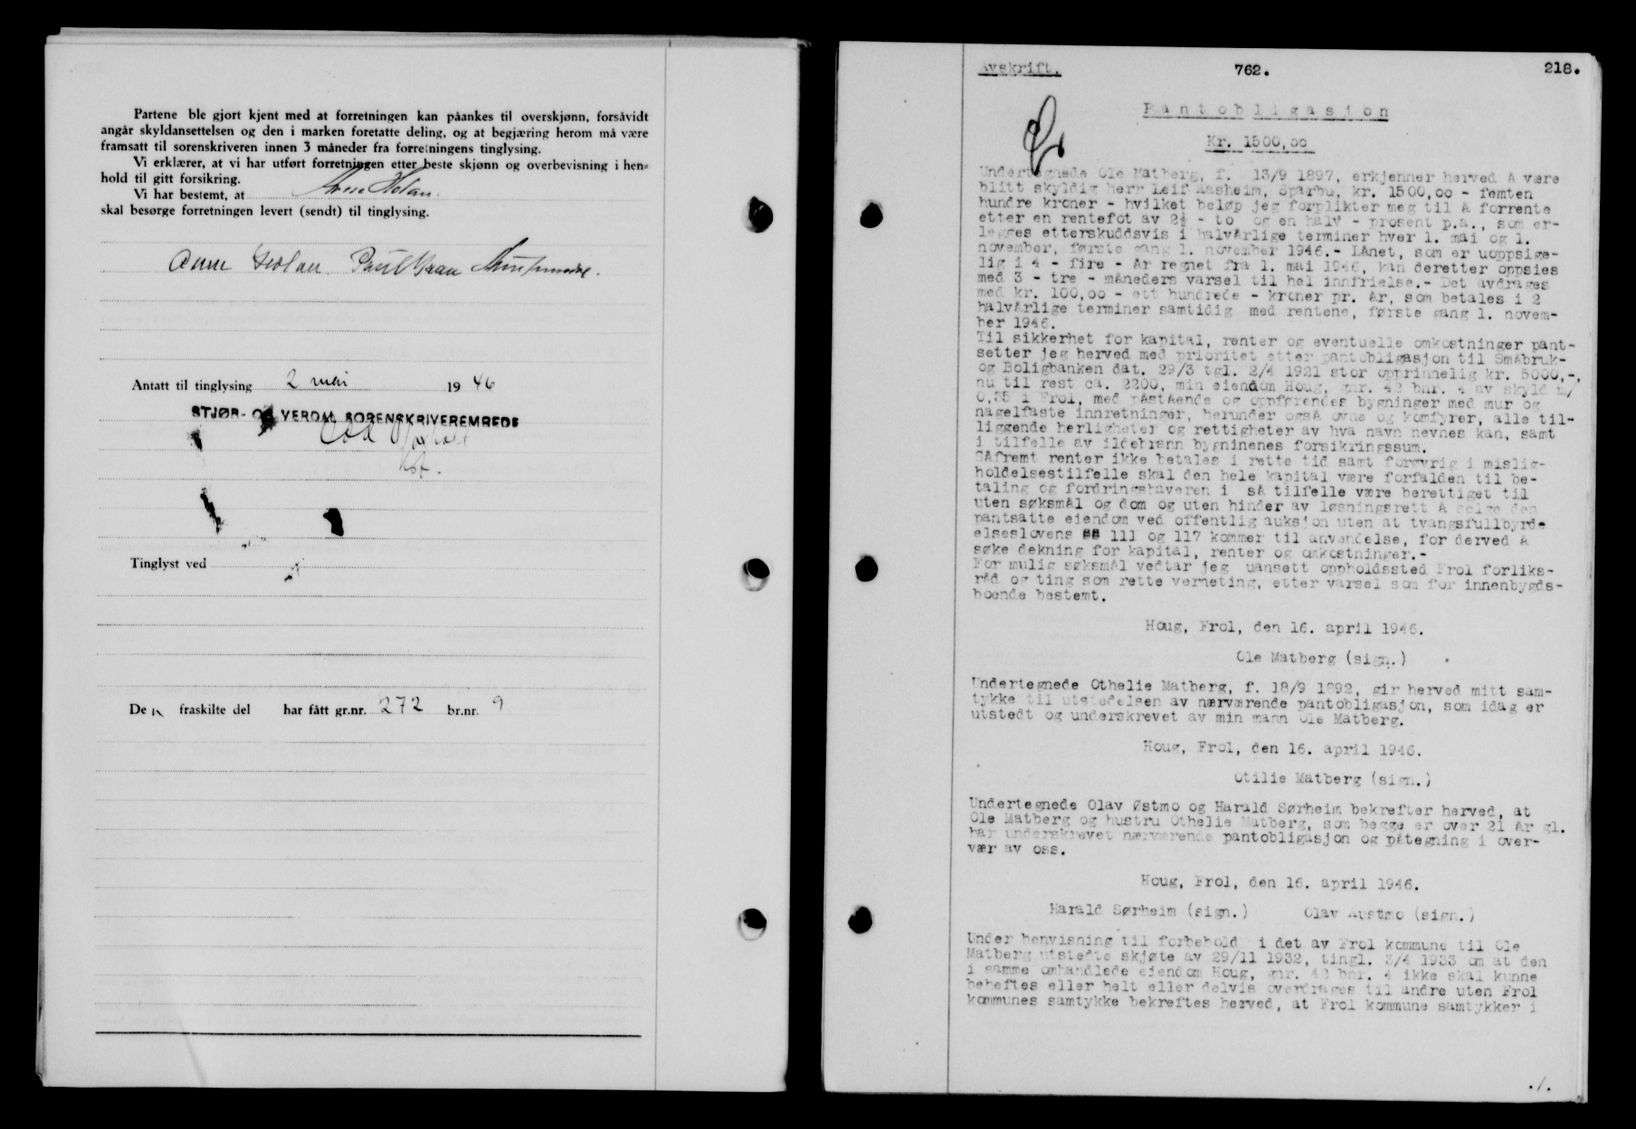 Partene ble gjort kjent med at forretningen kan påankes til overskjønn, forsåvidt
angår skyldansettelsen og den i marken foretatte deling, og at begjæring herom må være
framsatt til sorenskriveren innen 3 måneder fra forretningens tinglysing.
Vi erklærer, at vi har utført forretningen etter beste skjønn og overbevisning i hen-
hold til gitt forsikring.
Vi har bestemt, at
skal besørge forretningen levert (sendt) til tinglysing.
Antatt til tinglysing 2 mai 1946
STJØR- OG VERDAL SORENSKRIVEREMBEDE
Tinglyst ved
De fraskilte del har fått gr.nr. 272 br.nr. 9
Avskrift. 762. 218.
Pantobligasjon
Kr. 1500,oo
Undertegnede Ole Matberg, f. 13/9 1897, erkjenner herved å være
blitt skyldig herr Leif Aasheim, Sparbu, kr. 1500,oo - femten
hundre kroner - hvilket beløp jeg forplikter meg til å forrente
etter en rentefot av 2½ - to og en halv - prosent p.a., som er-
legges etterskuddsvis i halvårlige terminer hver 1. mai og 1.
november, første gang 1. november 1946.- Lånet, som er uoppsige-
lig i 4 - fire - år regnet fra 1. mai 1946, kan deretter oppsies
med 3 - tre - måneders varsel til hel innfrielse.- Det avdrages
med kr. 100,oo - ett hundrede - kroner pr. år, som betales i 2
halvårlige terminer samtidig med rentene, første gang 1. novem-
ber 1946.
Til sikkerhet for kapital, renter og eventuelle omkostninger pant-
setter jeg herved med prioritet etter pantobligasjon til Småbruk-
og Boligbanken dat. 29/3 tgl. 2/4 1921 stor opprinnelig kr. 5000,-,
nu til rest ca. 2200, min eiendom Houg, gnr. 42 bnr. 4 av skyld m/
0,35 i Frol, med påstående og oppførendes bygninger med mur og
nagelfaste innretninger, herunder også ovne og komfyrer, alle til-
liggende herligheter og rettigheter av hva navn nevnes kan, samt
i tilfelle av ildebrann bygninenes forsikringssum.
Såfremt renter ikke betales i rette tid samt forøvrig i mislig-
holdelsestilfelle skal den hele kapital være forfalden til be-
taling og fordringshaveren i så tilfelle være berettiget til
uten søksmål og dom og uten hinder av løsningsrett å selge den
pantsatte eiendom ved offentlig auksjon uten at tvangsfullbyrd-
elseslovens §§ 111 og 117 kommer til anvendelse, for derved å
søke dekning for kapital, renter og omkostninger.-
For mulig søksmål vedtar jeg uansett oppholdssted Frol forliks-
råd og ting som rette verneting, etter varsel som for innenbygds-
boende bestemt.
Houg, Frol, den 16. april 1946.
Ole Matberg (sign.)
Undertegnede Othelie Matberg, f. 18/9 1892, gir herved mitt sam-
tykke til utstedelsen av nærværende pantobligasjon, som idag er
utstedt og underskrevet av min mann Ole Matberg.
Houg, Frol, den 16. april 1946.
Otilie Matberg (sign.)
Undertegnede Olav Østmo og Harald Sørheim bekrefter herved, at
Ole Matberg og hustru Othelie Matberg, som begge er over 21 år gl.
har underskrevet nærværende pantobligasjon og påtegning i over-
vær av oss.
Houg, Frol, den 16. april 1946.
Harald Sørheim (sign.) Olav Austmo (sign.)
Under henvisning til forbehold i det av Frol kommune til Ole
Matberg utstedte skjøte av 29/11 1932, tingl. 3/4 1933 om at den
i samme omhandlede eiendom Houg, gnr. 42 bnr. 4 ikke skal kunne
beheftes eller helt eller delvis overdrages til andre uten Frol
kommunes samtykke bekreftes herved, at Frol kommune samtykker i
./.